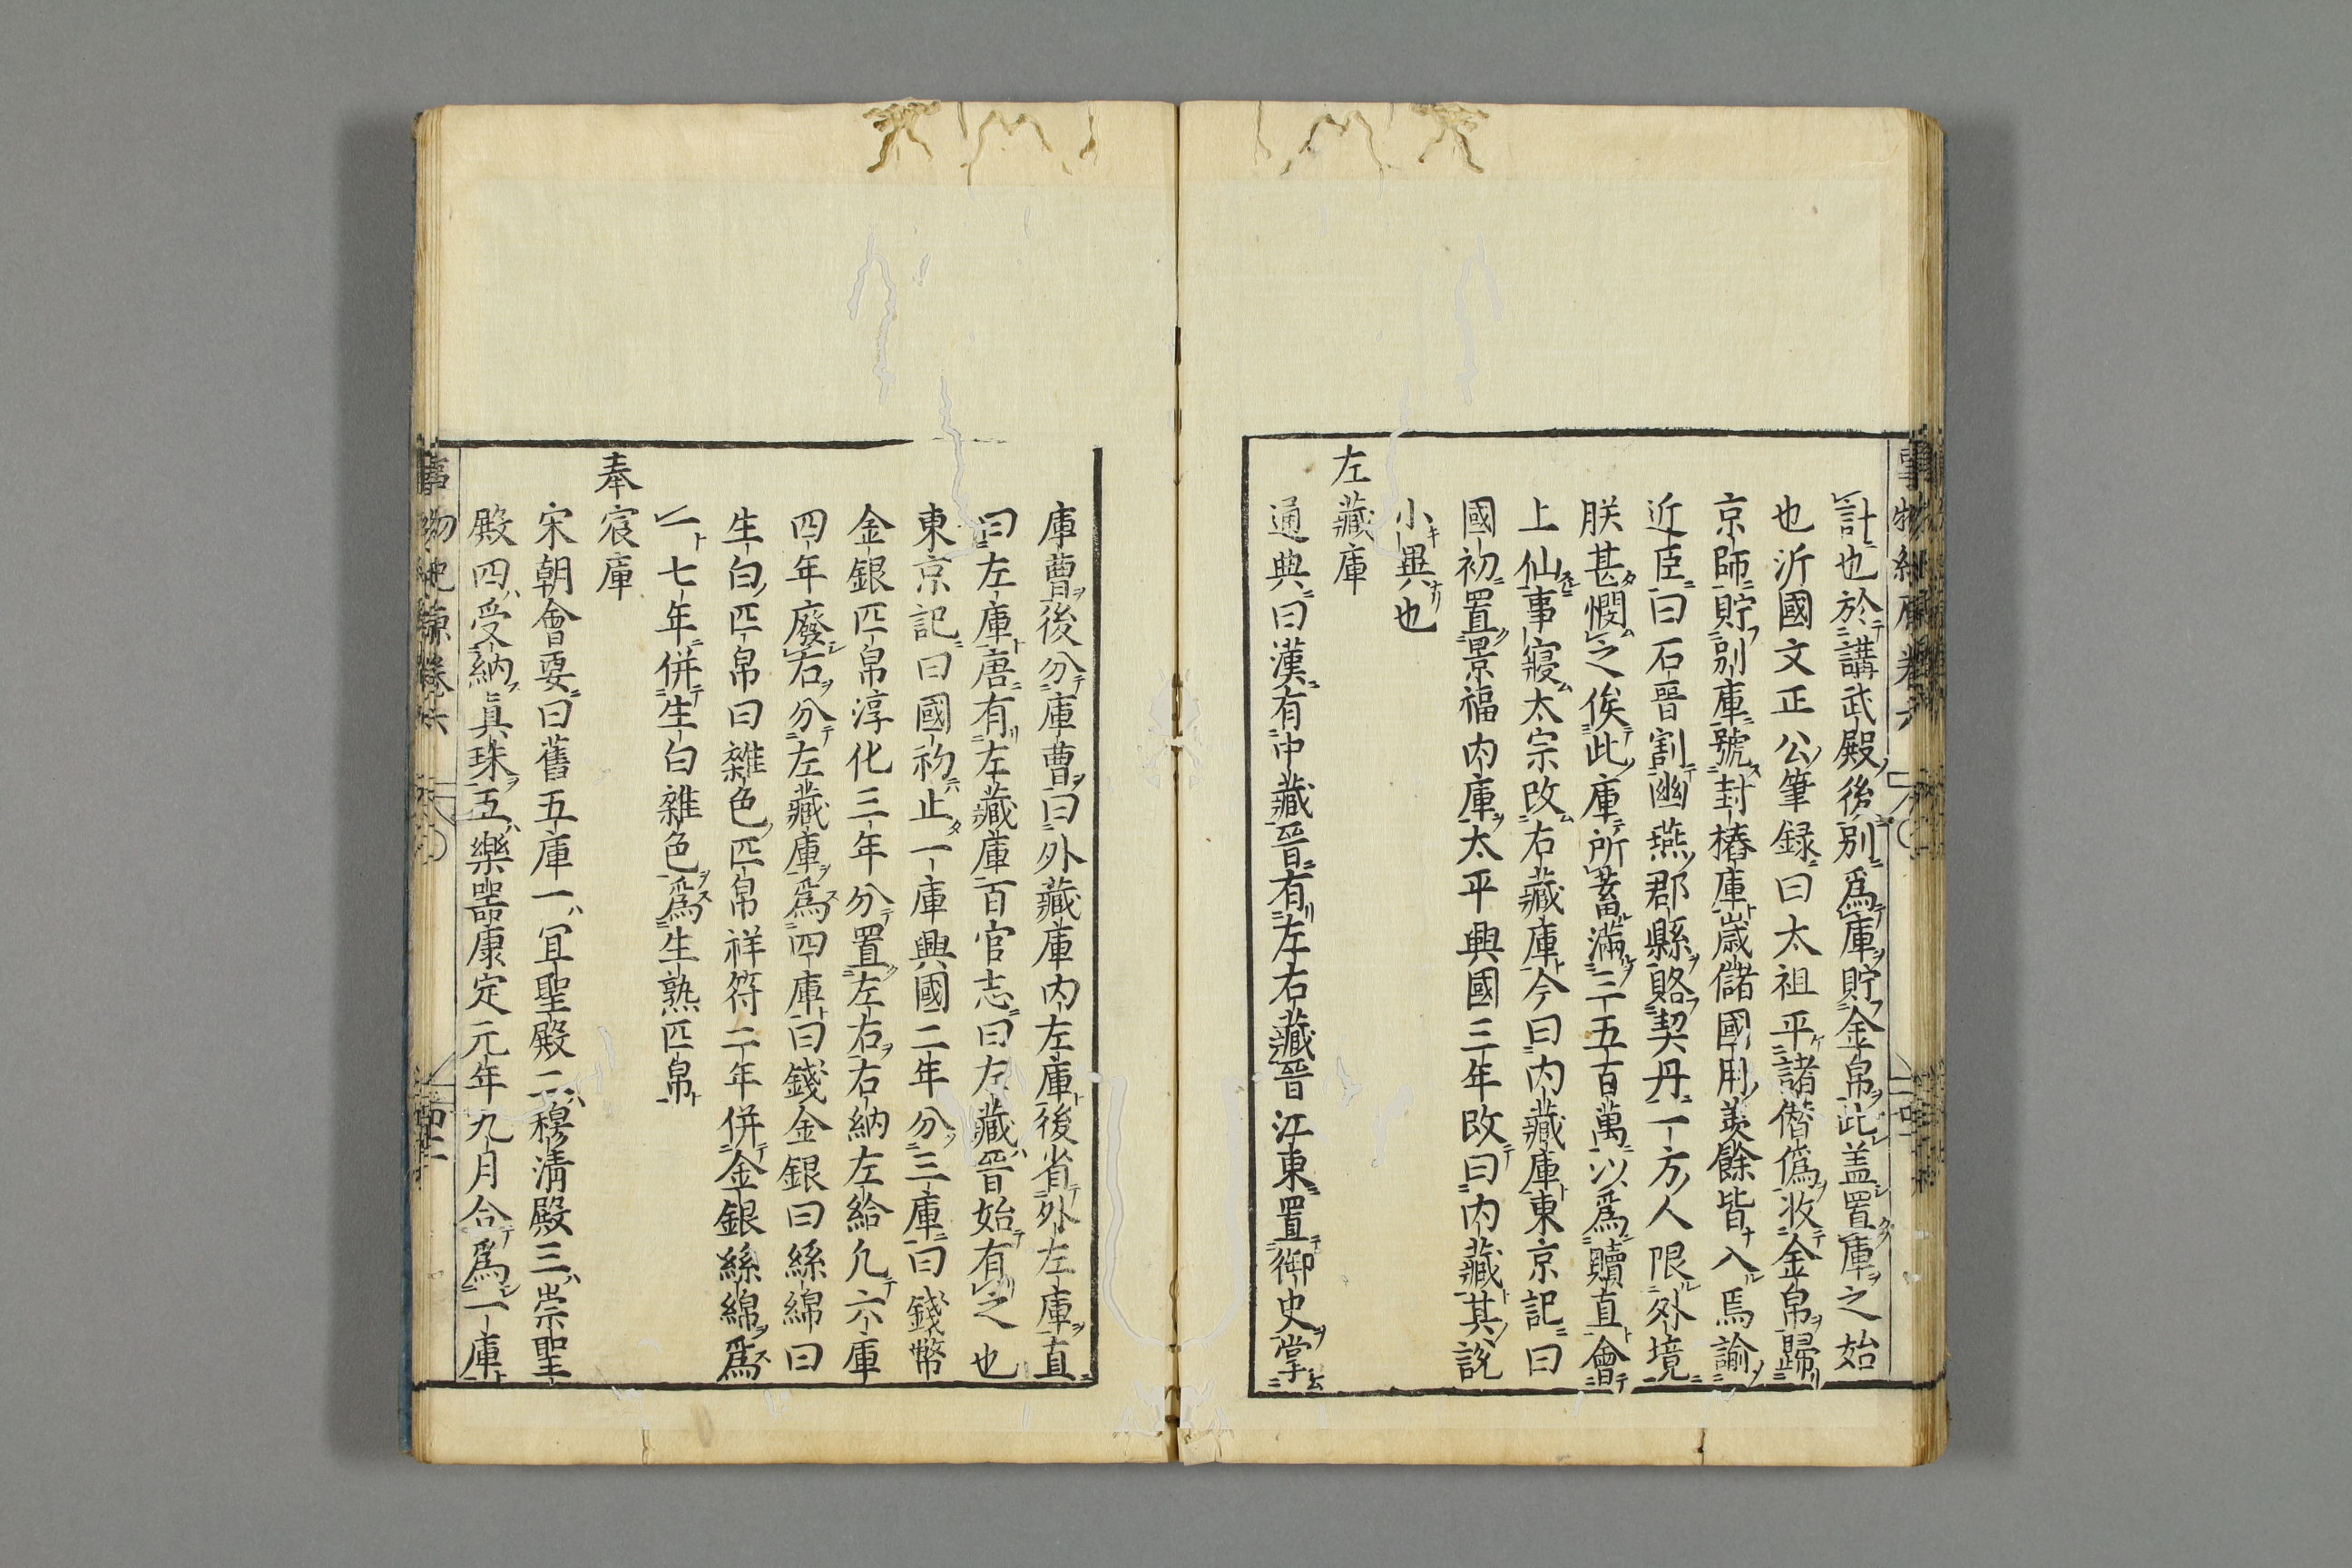 計也於講武殿後別爲庫貯金帛此盖置庫之始
也沂國文正公筆録曰太祖平諸僭僞收金帛歸
京師貯別庫號封樁庫歳儲國用羨餘皆入焉諭
近臣曰石晉割幽燕郡縣賂契丹一方人限外境
朕甚憫之俟此庫所蓄滿三五百萬以爲贖直會
上仙事寢太宗改右藏庫今曰内藏庫東京記曰
國初置景福内庫太平興國三年改曰内藏其説
小異也
左藏庫
通典曰漢有中藏晉有左右藏晉江東置御史掌
庫曹後分庫曹曰外藏庫内左庫後省外左庫直
曰左庫唐有左藏庫百官志曰左藏晉始有之也
東京記曰國初止一庫興國二年分三庫曰錢幣
金銀匹帛淳化三年分置左右右納左給凢六庫
四年廢右分左藏庫爲四庫曰錢金銀曰絲綿曰
生白匹帛曰雜色匹帛祥符二年併金銀絲綿爲
一七年併生白雜色爲生熟匹帛
奉宸庫
宋朝會要曰舊五庫一冝聖殿二穆淸殿三崇聖
殿四受納眞珠五樂器康定元年九月合爲一庫
事物紀原卷六